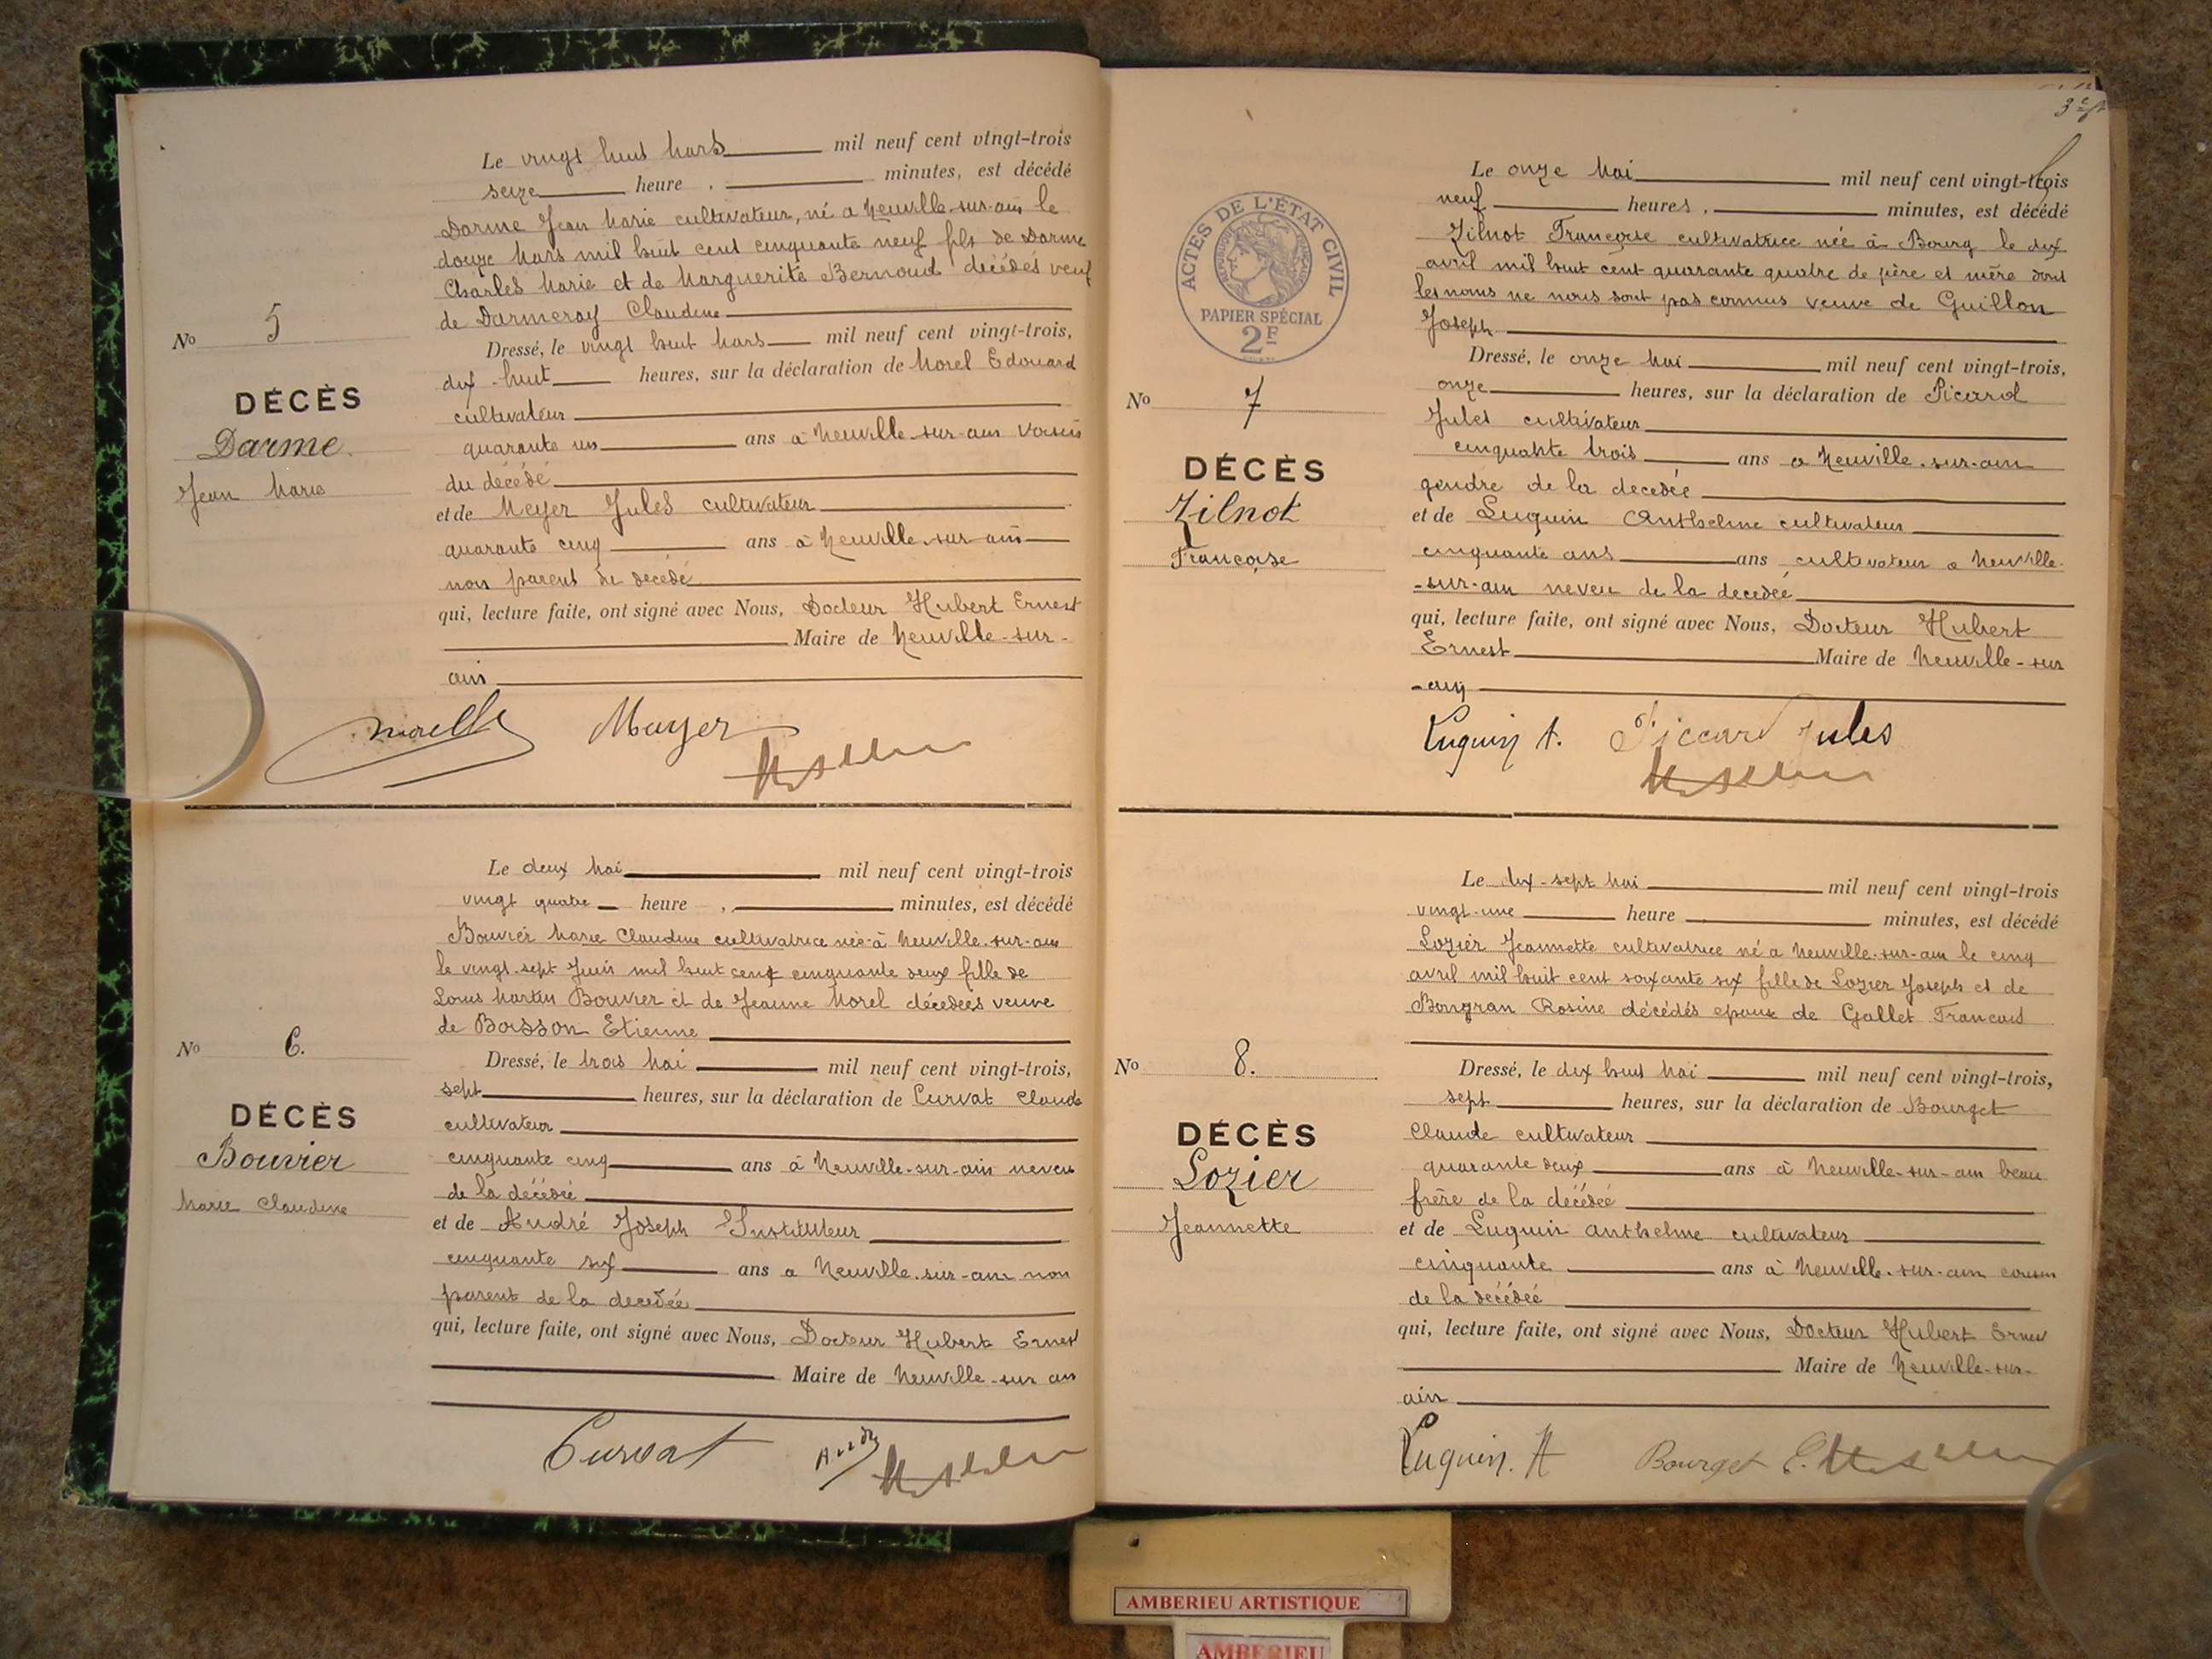 Le vingt huit Mars mil neuf cent vingt-trois
seize heure , minutes, est décédé
Darme Jean Marie cultivateur, né a Neuville-sur-ain le
douze Mars mil huit cent cinquante neuf fils de Darme
Charles Marie et de Marguerite Bernoud décédés veuf
de Darmeray Claudine
No 5
Dressé, le vingt huit Mars mil neuf cent vingt-trois,
dix-huit heures, sur la déclaration de Morel Edouard
DÉCÈS
cultivateur
Darme
quarante un ans à Neuville-sur-ain voisin
Jean Marie
du décédé
et de Meyer Jules cultivateur
quarante cinq ans à Neuville-sur-ain
non parent du decedé
qui, lecture faite, ont signé avec Nous, Docteur Hubert Ernest
Maire de Neuville-sur-
ain
Morel Mayer
Le deux Mai mil neuf cent vingt-trois
vingt quatre heure , minutes, est décédé
Bouvier Marie Claudine cultivatrice née à Neuville-sur-ain
le vingt-sept Juin mil huit cent cinquante deux fille de
Louis Martin Bouvier et de Jeanne Morel décédées veuve
de Boisson Etienne
No 6.
Dressé, le trois Mai mil neuf cent vingt-trois,
sept heures, sur la déclaration de Curvat Claude
DÉCÈS
cultivateur
Bouvier
cinquante cinq ans à Neuville-sur-ain neveu
Marie Claudine
de la décédée
et de André Joseph Instituteur
cinquante six ans a Neuville-sur-ain non
parent de la decedée
qui, lecture faite, ont signé avec Nous, Docteur Hubert Ernest
Maire de Neuville-sur ain
Curvat André
3e ft
Le onze Mai mil neuf cent vingt-trois
neuf heures , minutes, est décédé
Zilnot Françoise cultivatrice née à Bourg le dix
avril mil huit cent quarante quatre de père et mère dont
les noms ne nous sont pas connus veuve de Guillon
Joseph
ACTES DE L'ÉTAT CIVIL
RÉPUBLIQUE FRANÇAISE
PAPIER SPÉCIAL
2F
Dressé, le onze Mai mil neuf cent vingt-trois,
No 7
onze heures, sur la déclaration de Picard
Jules cultivateur
DÉCÈS
cinquante trois ans a Neuville-sur-ain
Zilnot
gendre de la decedée
Françoise
et de Luquin Anthelme cultivateur
cinquante ans ans cultivateur a Neuville-
-sur-ain neveu de la decedée
qui, lecture faite, ont signé avec Nous, Docteur Hubert
Ernest Maire de Neuville-sur
-ain
Luquin A. Piccard Jules
Le dix-sept Mai mil neuf cent vingt-trois
vingt-une heure minutes, est décédé
Lozier Jeannette cultivatrice né a Neuville-sur-ain le cinq
avril mil huit cent soixante six fille de Lozier Joseph et de
Bongran Rosine décédés epoux de Gallet Francois
No 8.
Dressé, le dix huit Mai mil neuf cent vingt-trois,
sept heures, sur la déclaration de Bourget
DÉCÈS
Claude cultivateur
Lozier
quarante deux ans à Neuville-sur-ain beau
Jeannette
frère de la décédée
et de Luquin Anthelme cultivateur
cinquante ans à Neuville-sur-ain cousin
de la décédée
qui, lecture faite, ont signé avec Nous, Docteur Hubert Ernest
Maire de Neuville-sur-
ain
Luquin. A Bourget C.
AMBERIEU ARTISTIQUE
AMBERIEU